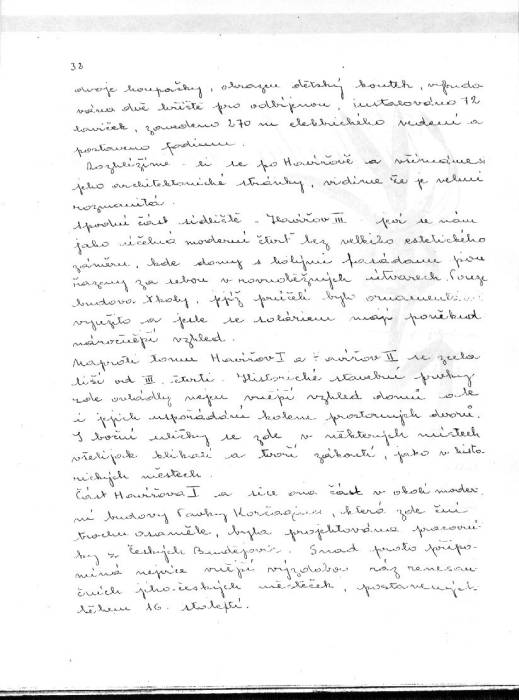 32
dvoje houpačky, obrazen dětský koutek, vybudo
vána dvě hřiště pro odbíjenou, instalováno 72
laviček, zavedeno 270 m elektrického vedení a
postaveno podium.
Rozhlížíme - li se po Havířově a všímáme si
jeho architektonické stránky, vidíme že je velmi
rozmanitá.
Spodní část sídliště - Havířov III - jeví se nám
jako účelná moderní čtvrť bez velkého estetického
záměru, kde domy s holými fasádami jsou
řazeny za sebou v rovnoběžných útvarech. Pouze
budova školy, jejíž průčelí bylo ornamentálně
využito a jesle se soláriem mají poněkud
náročnější vzhled.
Naproti tomu Havířov I a Havířov II se zcela
liší od III. čtvrti. Historické stavební prvky
zde ovládly nejen vnější vzhled domů ale
i jejich uspořádání kolem prostorných dvorů.
I boční uličky se zde v některých místech
všelijak klikatí a tvoří zákoutí, jako v histo
rických městech.
Část Havířova I a sice ona část v okolí moder
ní budovy Pavky Korčagina, která zde ční
trochu osaměle, byla projektována pracovní
ky z Českých Budějovic. Snad proto připo-
míná nejvíce vnější výzdobou ráz renesan
čních jihočeských městeček, postavených
během 16. století.